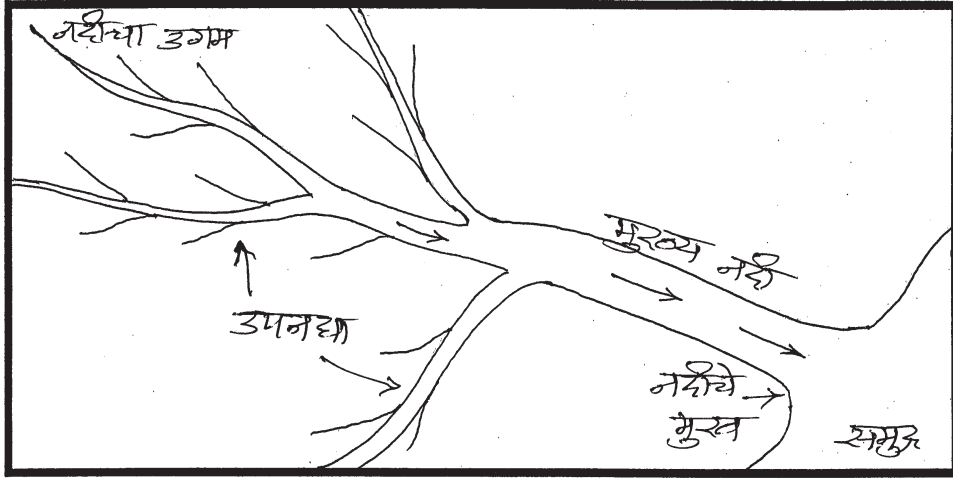 नदीचा उगम
मुख्य नदी
उपनद्या
नदीचे
मुख
समुद्र